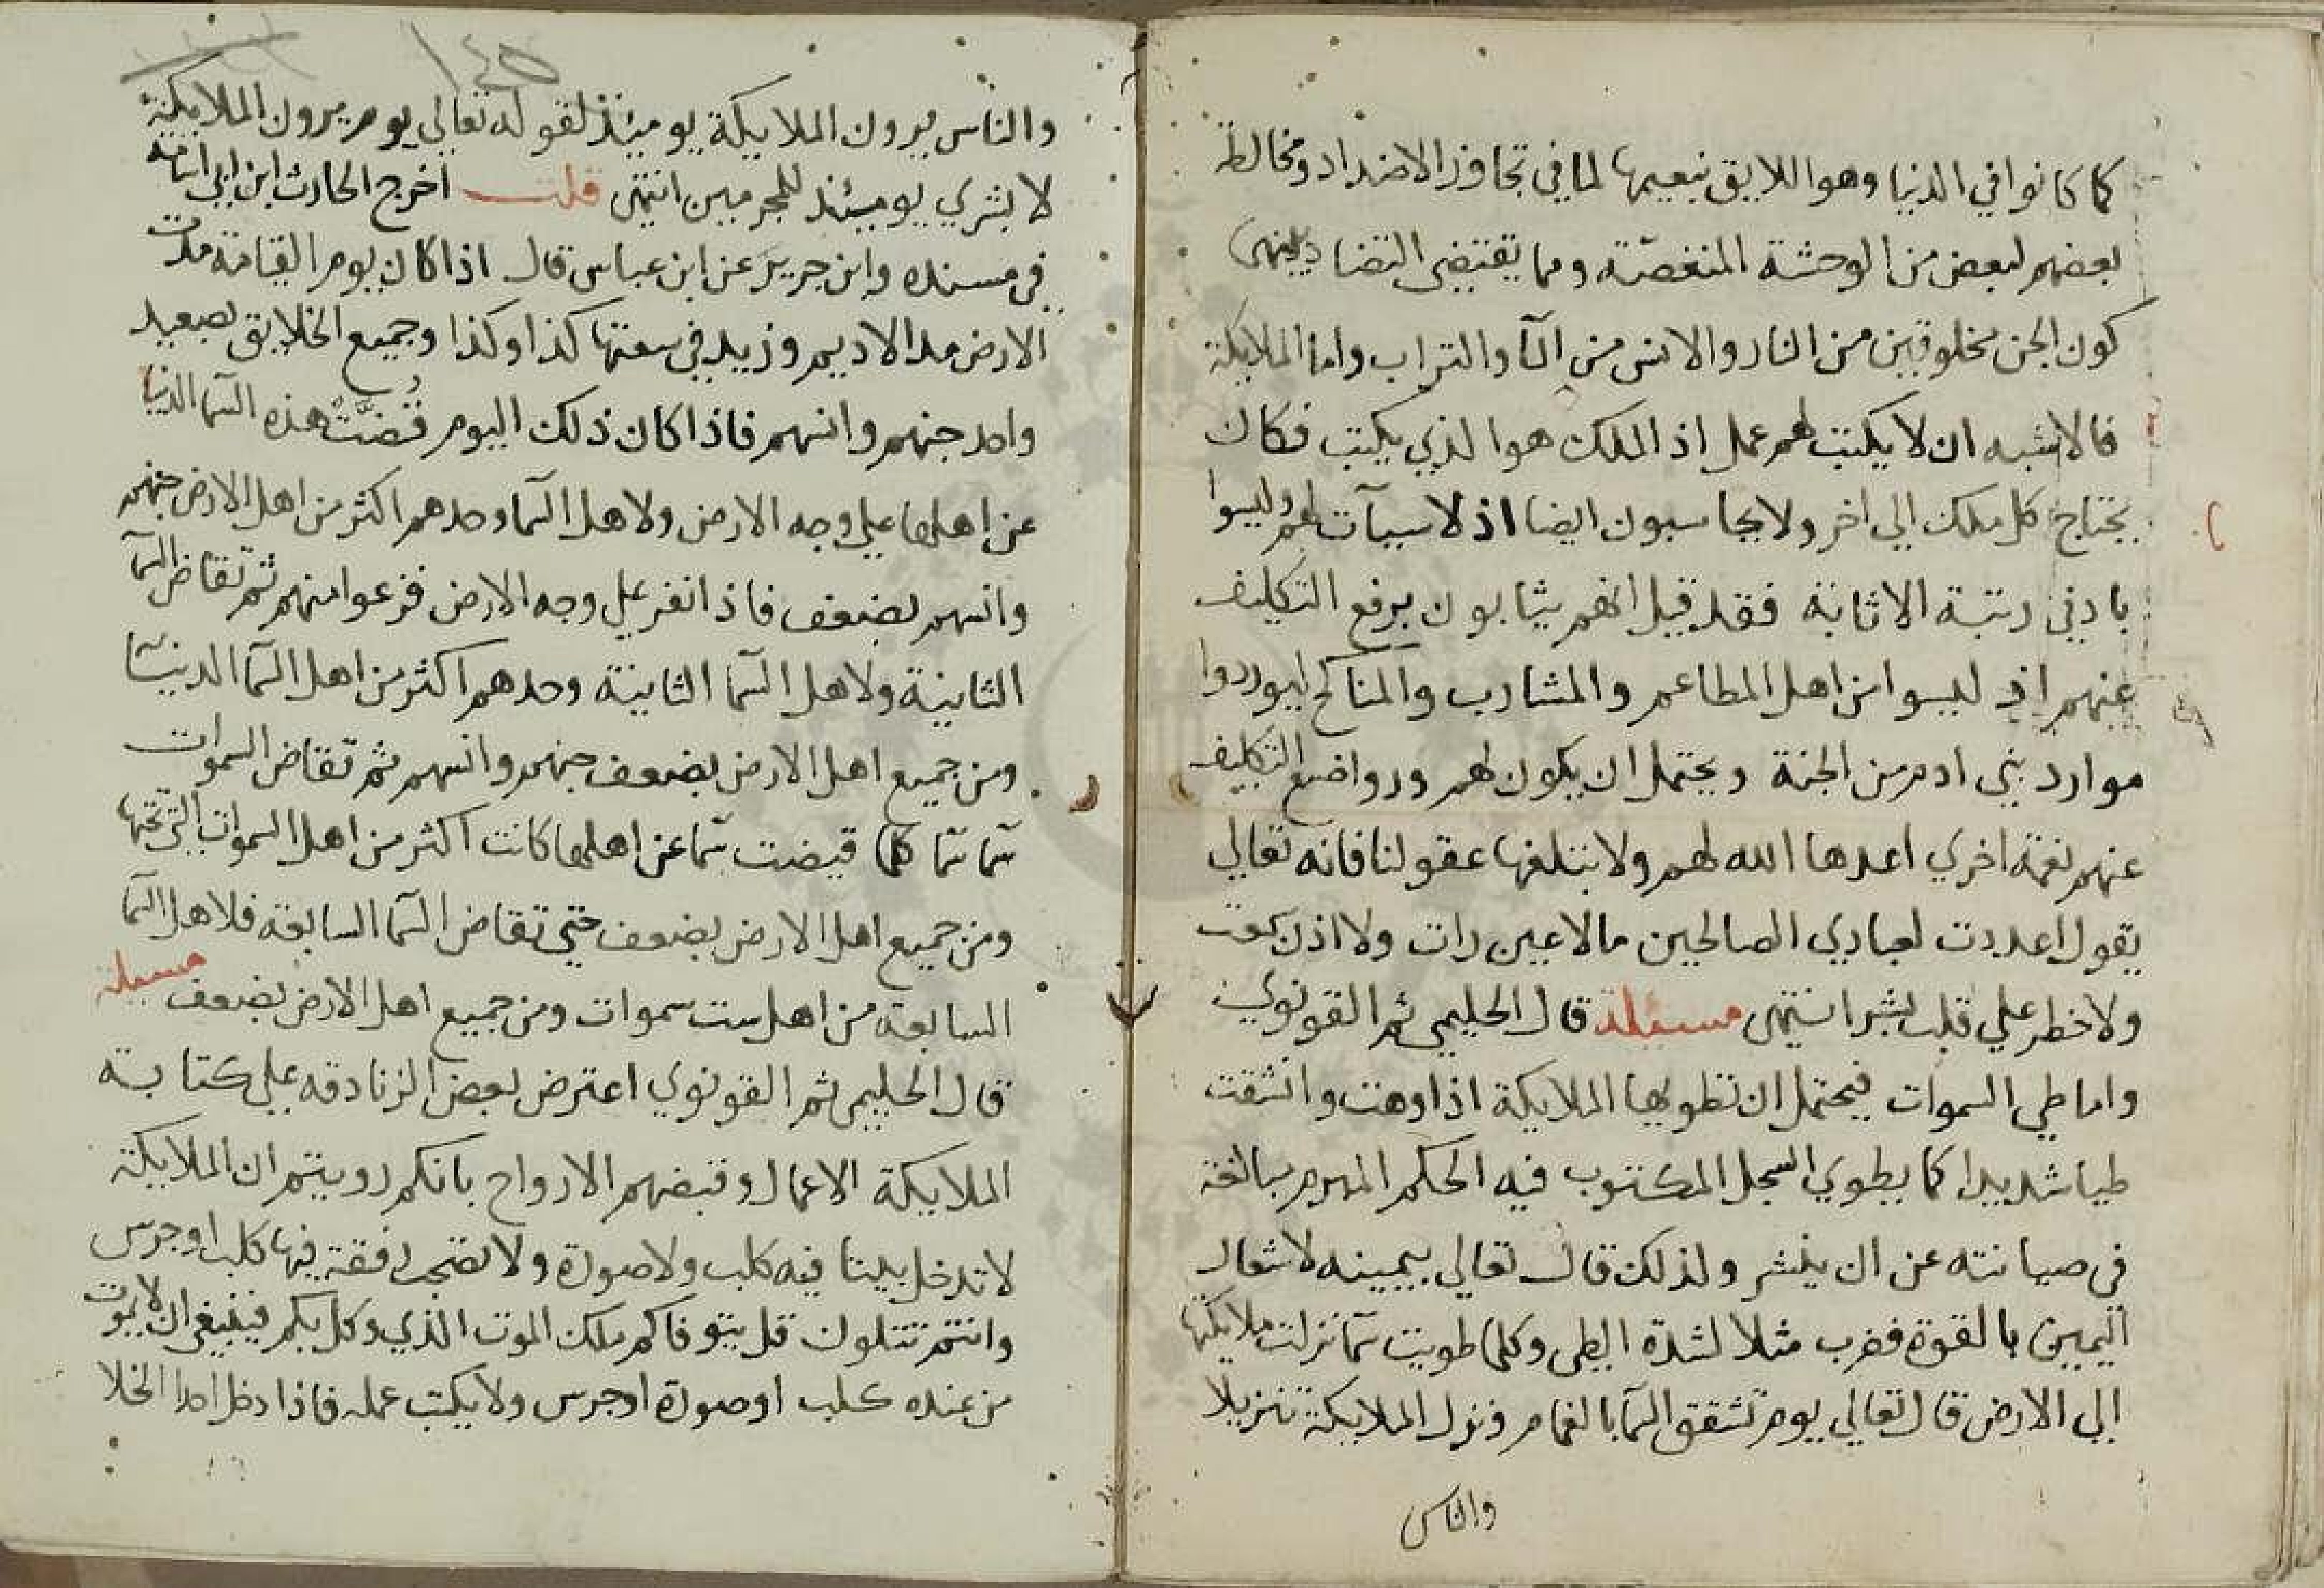 كما كانوا في الدنيا وهو اللايق بنعيمها لما في تجاوز الاضداد ومخالطة
بعضهم لبعض من الوحشة المنغصة ومما يقتضي التضاد بينهم
كون الجن مخلوقين من النار والانس من المآ والتراب واما الملايكة
فالاشبه ان لا يكتب لهم عمل اذ الملك هو الذي يكتب فكان
يحتاج كل ملك الي اخر ولا يحاسبون ايضا اذ لا سيآت لهم وليسوا
بادني رتبة الاثابة فقد قيل انهم يثابون برفع التكليف
عنهم اذ ليسوا من اهل المطاعم والمشارب والمناكح ليوردوا
موارد بني ادم من الجنة ويحتمل ان يكون لهم ورواضع التكليف
عنهم نعمة اخري اعدها الله لهم ولا تبتلغها عقولنا فانه تعالي
يقول اعددت لعبادي الصالحين ما لا عين رات ولا اذن سمعت
ولا خطر علي قلب بشر انتهي مسئلة قال الحليمي ثم القونوي
واما طي السموات فيحتمل ان تطويها الملايكة اذا وهت وانشقت
طيا شديدا كما يطوي السجل المكتوب فيه الحكم المبرم مبالغة
في صيانته عن ان ينشر ولذلك قال تعالي بيمينه لاشعار
اليمين بالقوة فضرب مثلا لشدة الطي وكلما طويت سما نزلت ملايكتها
الي الارض قال تعالي يوم تشقق السمآ بالغمام ونزل الملايكة تنزيلا
والناس
١٤٥
والناس يرون الملايكة يوميئذ لقوله تعالي يوم يرون الملايكة
لا بشري يوميئذ للمجرمين انتهي قلت اخرج الحارث ابن ابي اسامة
في مسنده وابن جرير عن ابن عباس قال اذا كان يوم القيامة مدت
الارض مد الاديم وزيد في سعتها كذا وكذا وجميع الخلايق بصعيد
واحد جنهم وانسهم فاذا كان ذلك اليوم قُضَّتْ هذه السما الدنيا
عن اهلها علي وجه الارض ولاهل السما وحدهم اكثر من اهل الارض جنهم
وانسهم بضعف فاذا نفر علي وجه الارض فزعوا منهم ثم تقاض السما
الثانية ولاهل السما الثانية وحدهم اكثر من اهل السما الدنيا
ومن جميع اهل الارض بضعف جنهم وانسهم ثم تقاض السموات
سما سما كلما قيضت سما عن اهلها كانت اكثر من اهل السموات التي تحتها
ومن جميع اهل الارض بضعف حتي تقاض السما السابعة فلاهل السما
السابعة من اهل ست سموات ومن جميع اهل الارض بضعف مسئلة
قال الحليمي ثم القونوي اعترض بعض الزنادقه علي كتابة
الملايكة الاعمال وقبضهم الارواح بانكم رويتم ان الملايكة
لا تدخل بيتا فيه كلب ولا صورة ولا تصحب رفقة فيها كلب او جرس
وانتم تتلون قل يتوفاكم ملك الموت الذي وكل بكم فينبغي ان لا يموت
من عنده كلب او صورة او جرس ولا يكتب عمله فاذا دخل احدا الخلا